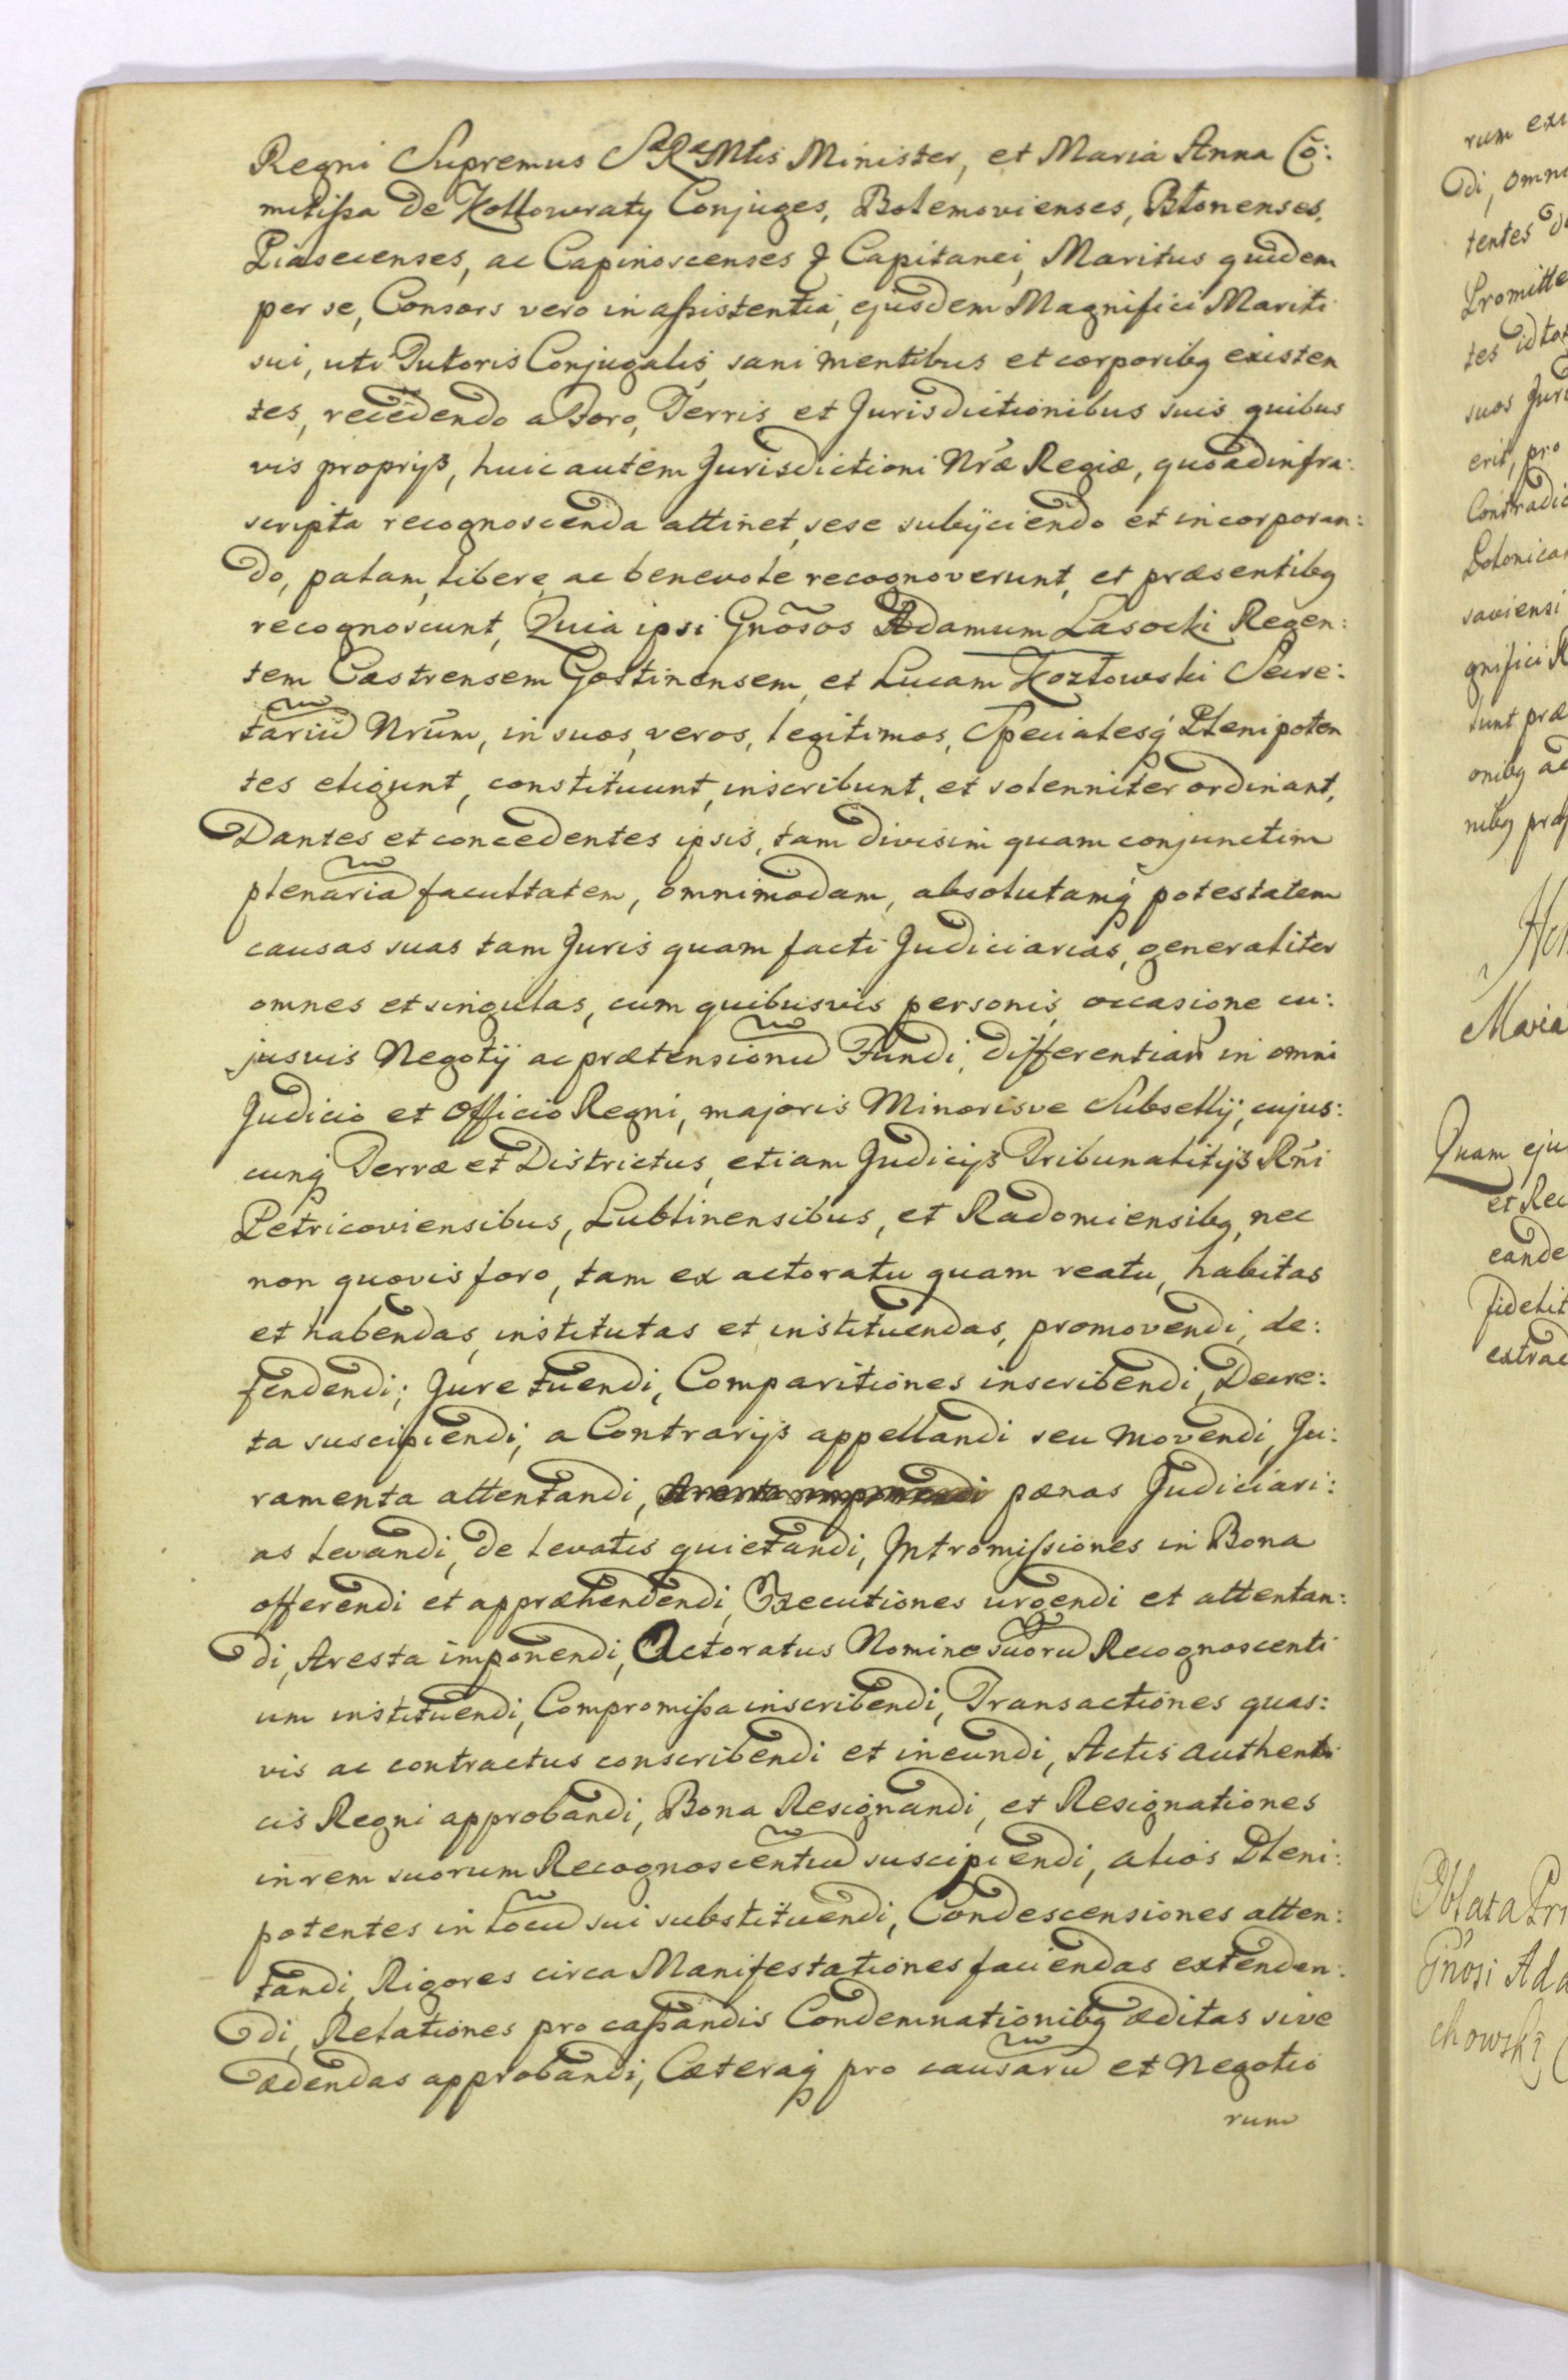 Regni Supremus SaeRaeMtis Minister, et Maria Anna Cō:
mitissa de Kollowraty Conjuges, Bolemovienses, Błonenses,
Piasecenses, ac Capinoscenses & Capitanei, Maritus quidem
per se, Consors vero in assistentia, ejusdem Magnifici Mariti
sui, uti Tutoris Conjugalis, sani mentibus et corporibq existen
tes, recedendo a Foro, Terris et Jurisdictionibus suis quibus
vis proprijs, huic autem Jurisdictioni Nrae Regiae, quoad infra:
scripta recognoscenda attinet, sese subijciendo et incorporan:
do, palam, libere, ac benevole recognoverunt, et praesentibq
recognoscunt, Quia ipsi Gnosos Adamum Lasocki Regen:
tem Castrensem Gostinensem, et Lucam Kozłowski Secre:
tariū Nrum, in suos, veros, legitimos, Specialesq Plenipoten
tes eligunt, constituunt, inscribunt, et solenniter ordinant,
Dantes et concedentes ipsis, tam divisim quam conjunctim
plenariā facultatem, omnimodam, absolutamq potestatem
causas suas tam Juris quam facti Judiciarias, generaliter
omnes et singulas, cum quibusvis personis, occasione cu:
jusvis Negotij ac praetensionū Fundi, differentiarū in omni
Judicio et Officio Regni, majoris Minorisve Subsellij, cujus:
cunq Terrae et Districtus, etiam Judicijs Tribunalitijs Rni
Petricoviensibus, Lublinensibus, et Radomiensibq, nec
non quovis foro, tam ex actoratu quam reatu, habitas
et habendas, institutas et instituendas, promovendi, de:
fendendi; Jure tuendi, Comparitiones inscribendi, Decre:
ta suscipiendi, a Contrarijs appellandi seu movendi, Ju:
ramenta attentandi, paenas Judiciari:
as levandi, de levatis quietandi, Intromissiones in Bona
offerendi et appraehendendi, Executiones urgendi et attentan:
di, Aresta imponendi, Actoratus Nomine suorū Recognoscenti
um instituendi, Compromissa inscribendi, Transactiones quas:
vis ac contractus conscribendi et ineundi, Actis authenti
cis Regni approbandi, Bona Resignandi, et Resignationes
in rem suorum Recognoscentiū suscipiendi, alios Pleni:
potentes in locū sui substituendi, Condescensiones atten:
tandi, Rigores circa Manifestationes faciendas extenden:
di, Relationes pro cassandis Condemnationibq aeditas sive
aedendas approbandi, Caeteraq pro causarū et Negotio
rum
rum
Di, omn
tentes
Promitte
tes id
suos Juri
erit, pro
Contradic
Polonica
saviensi
gnifici R
nibq
Maria
Quam eju
et Rec
eande
fidelit
extrac
Oblata
Gnosi Ada
chowski